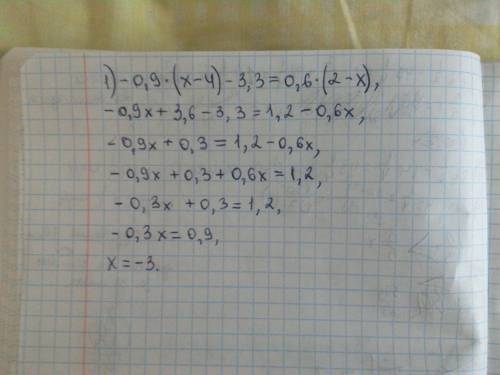 1) -0,9·(x-4)-3,3=0,6·(2-x),
-0,9x+3,6-3,3=1,2-0,6x,
-0,9x+0,3=1,2-0,6x,
-0,9x+0,3+0,6x=1,2,
-0,3x+0,3=1,2,
-0,3x=0,9,
x=-3.